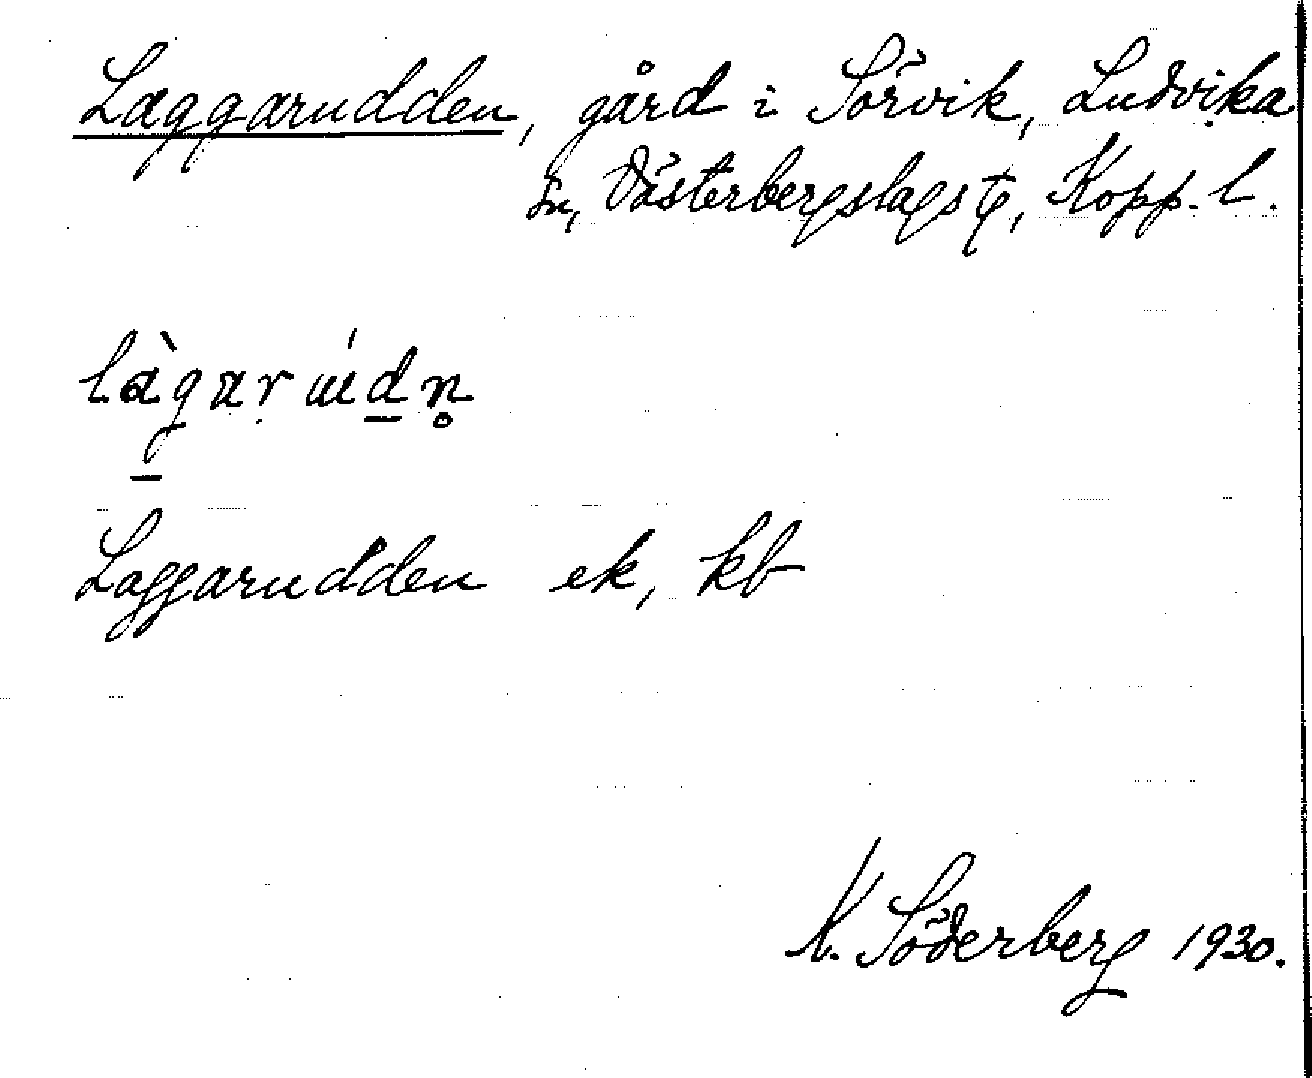 Laggarudden, gård i Sörvik, Ludvika
sn, Västerbergslags tg, Kopp. l.
làgarúdn̥
Laggarudden ek, kb
K. Söderberg 1930.